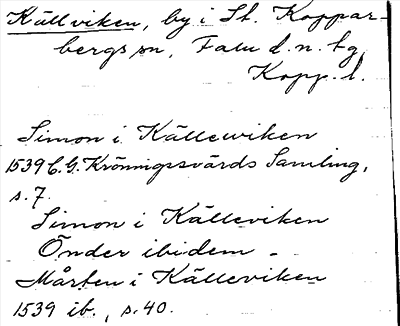 Källviken, by i St. Koppar-
bergs sn, Falu d.n. tg
Kopp. l.
Simon i Källewiken
1539 C. G. Krönningssvärds Samling,
s. 7.
Simon i Källeviken
Önder ibidem -
Mårten i Källeviken
1539 ib., s. 40.